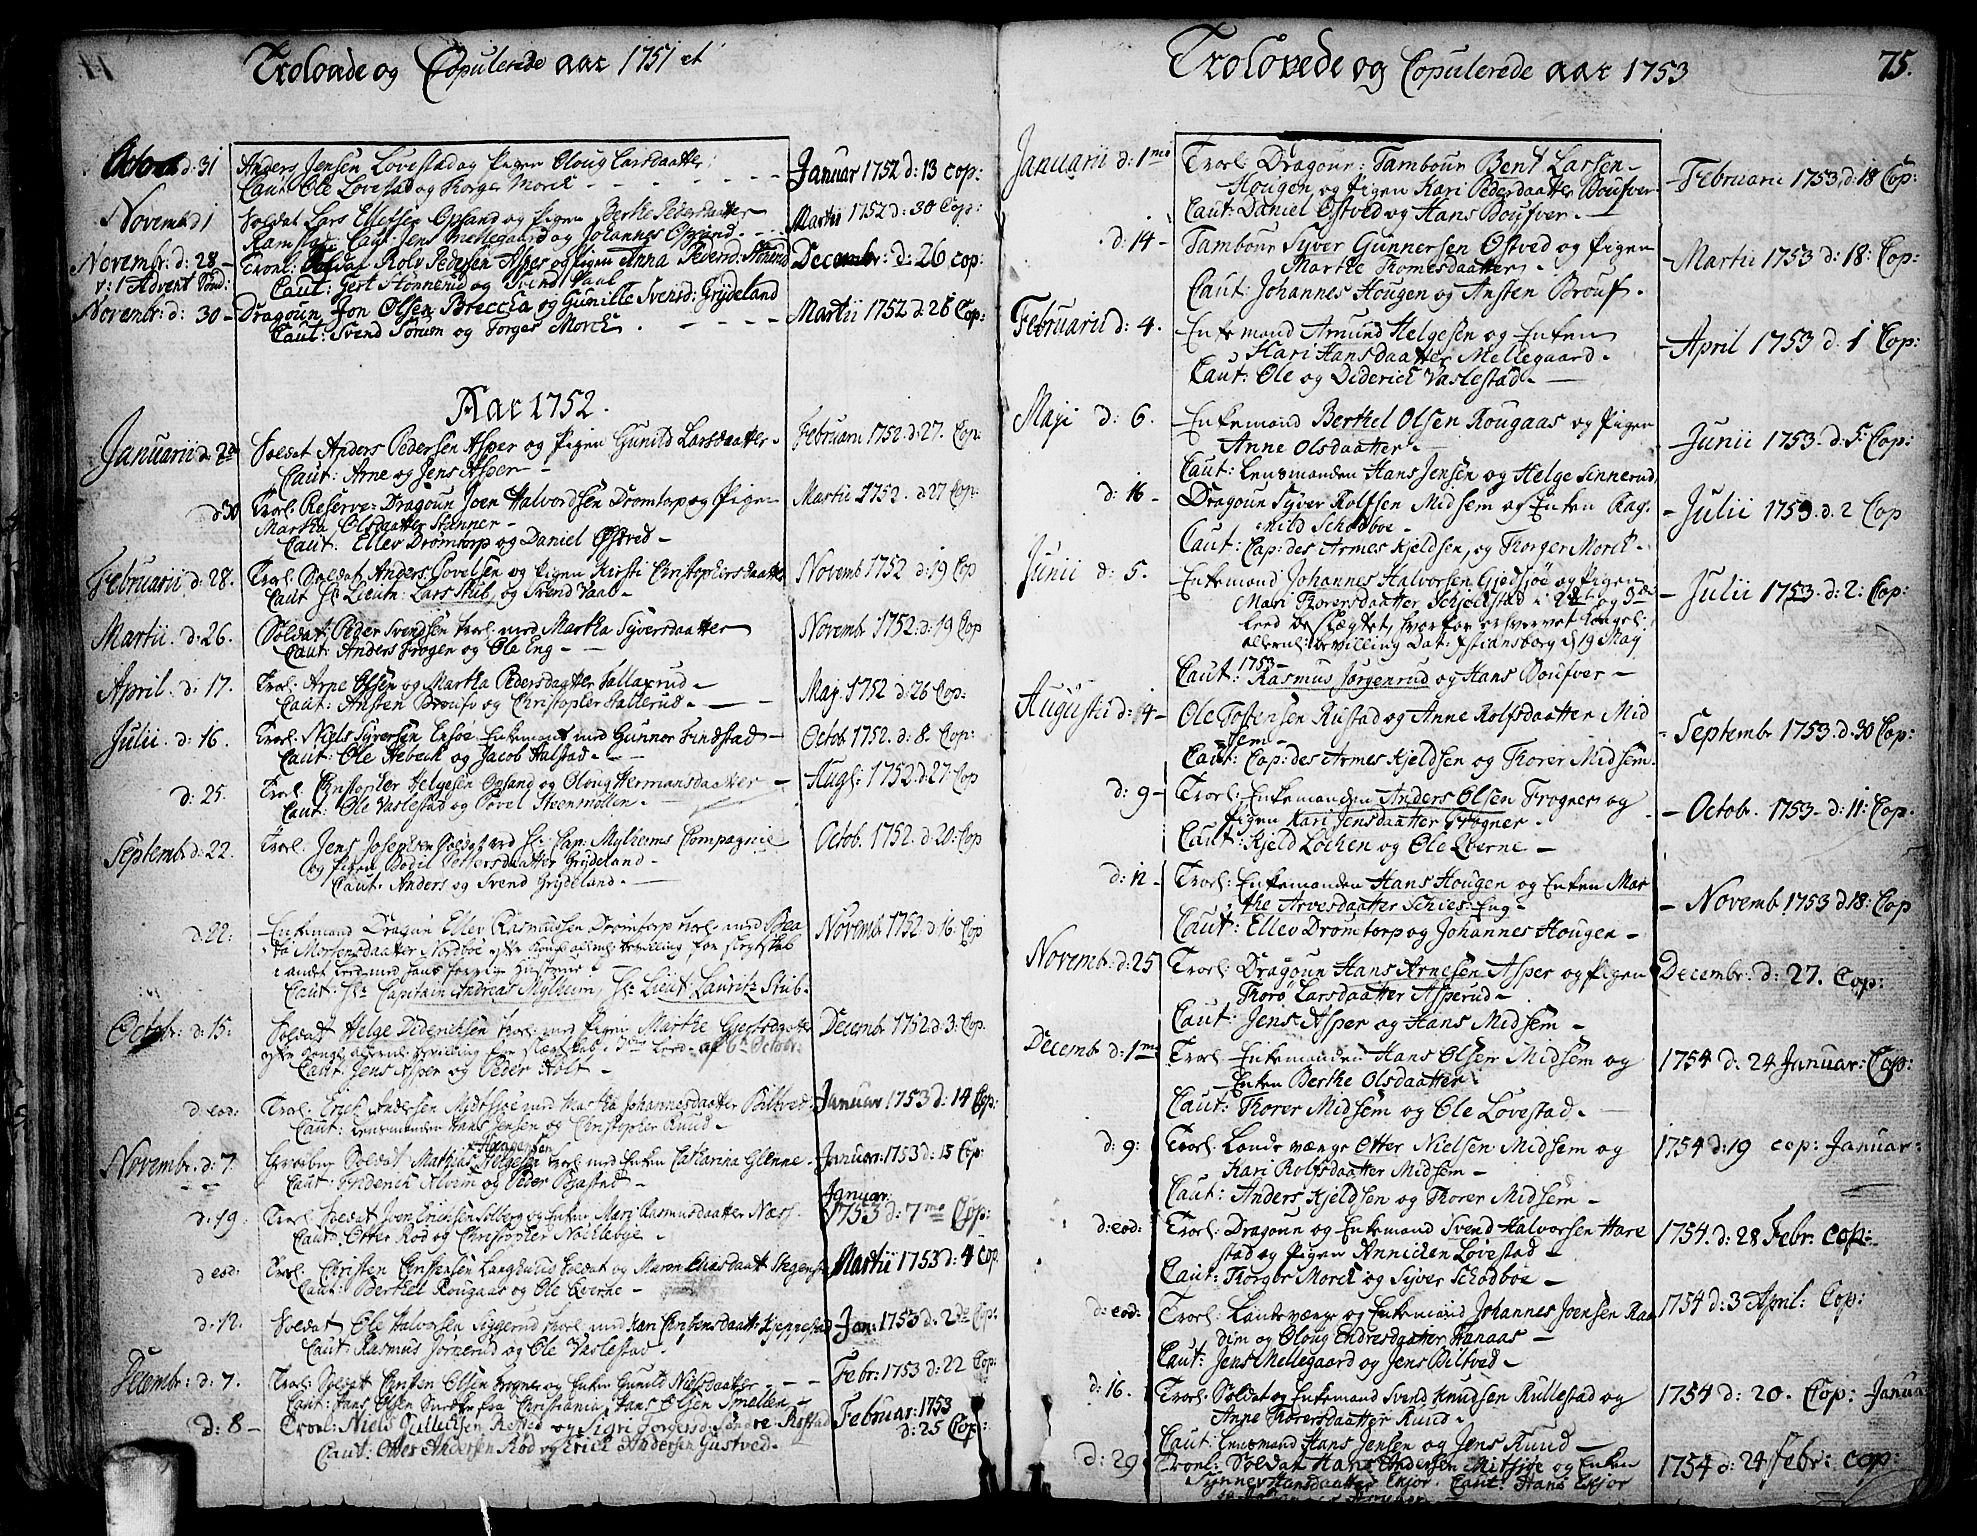 Trolovede og Copulerede aar 1751 et
Octob d: 31 Anders Jensen Lovestad og Pigen Oloug Larsdaatter: Januar 1752 d: 13 cop:
Caut Ole Lovestad og Torger Morck
Novemb d 1 Soldat Lars Ellefsen Opsand og Pigen Berthe Pedersdatter Martii 1752 d: 30 Cop:
Ramstad: Caut: Jens Mellegaard og Johannes
Novembr: d: 28 - Troel: Soldat Rolv Pedersen Asper og Pigen Anna Pedersd: Decembr: d: 26 cop:
v: 1 Advent Sønd: Caut: Gert Stonnerud og Svend Vaal
Novembr: d: 30 - Dragoun Jon Olsen Breccia og Gunille Svensd: Grydeland Martii 1752 d: 26 Cop:
Caut: Svend Sørum og Torger Morck
Aar 1752.
Januarii d. 2 Soldat Anders Pedersen Asper og Pigen Gunild Larsdaatter. Februarii 1752. d: 27. Cop:
Caut: Arne og Jens Asper
d 30 Troel: Reserve-Dragoun Joen Halvordsen Drømtop og Pigen Martii 1752. d. 27 Cop:
Martha Olsdaatter
Caut: Ellev Drømtorp og Daniel Østved
Februarii d: 28. Troel: Soldat Anders Povelsen og Pigen Kirsti Christophersdaatter Novemb 1752 d: 19 Cop
Caut Hr Lieutn: Lars Stub og Svend Vaal
Martii. d: 26. Soldat Peder Svendsen trol: med Martha Syversdaatter Novembr 1752. d: 19 Cop
Caut: Anders Frogen og Ole Eng
April. d: 17. Trol: Arne Olsen og Martha Pedersdaatter Maj. 1752 d: 26 Cop:
Caut: Ansten Broufv og Christopher
Julii. d: 16. Trol: Niels Syversen Ensøe Enkemand med Gunnor Findstad Octob 1752. d: 8. Cop:
Caut: Ole Hebeck og Jacob Halstad
d: 25. Trol Christopher Helgesen Opsand og Oloug Hermansdaatter Augl: 1752 d: 27. Cop
Caut: Ole Vaslestad og Povel Steensmollen
Septemb d: 22. Trol: Jens Josephsen Soldat ved Hr: Cap: Mylheims Compagnie Octob. 1752. d. 20: Cop
og Pigen Bodil Pettersdaatter Grydeland
Caut: Anders og Svend Grydeland
d: 22: Enkemand Dragun Ellev Rasmussen Drømtorp trol: med Bea Novemb 1752 d: 16. Cop
ta Mortensdaatter Nordbøe efter Kongl: allern: bevilling for slegtskab
i andet Leed med hans forrige Hustrue
Caut: Hr Capitain Andreas Mylheim, Hr Lieut. Lauritz Stub
Octobr. d: 15: Soldat Helge Diderichsen trol: med Pigen Marthe Gjertsdaatter Decembr 1752. d. 3: Cop.
efter Kongl: allern: bevilling for slegtskab i 3die Leed. af 6te Octobr:
Caut: Jens Asper og Peder Holt
d eod: Trol: Erich Andersen Midtsjøe med Martha Johannesdaatter Biltved Januar 1753 d: 14 Cop:
Caut: Lensmanden Hans Jensen og Christopher Ruud
Novembr. d: 7. Geworben Soldat Mathias Haagensen trol: med Enken Catharina Glenne Januar: 1753 d: 15 Cop:
Caut: Friderich Alvim og Peder Bjastad
d: 19. Trol Soldat Joen Ericksen Solberg og Enken Mari Rasmusdaatter Næss. Januar. 1753 d: 7 Cop:
Caut: Otter Rod og Christopher Nøcklebye
d eod: Trol: Christen Christensen Langhuus Soldat og Maren Eliasdaatt Martii 1753 d: 4 Cop.
Caut: Berthel Rougaas og Ole
d: 12. Soldat Ole Halvorsen Siggerud trol: med Kari Christensdaatt: Kjeppestad Jan: 1753 d. 2 Cop:
Caut Rasmus Jornerud og Ole Vaslestad
Decembr: d: 7. Trol: Soldat Christen Olsen Frogner og Enken Gunild Nielsdaatter Febr: 1753 d: 22 Cop:
Caut: Hans Olsen fra Christiania, Hans Olsen Smellen
d: 8 - Troel: Niels Jullefsen Rostad og Sigri Torgersd: Februar: 1753 d: 25 Cop:
Caut: Otter Andersen Rod og Erick Andersen Gustved
Trolovede og Copulerede aar 1753 75.
Januarii d: 1mo Troel: Dragour: Tambour Bent Larsen - Februarii 1753. d: 18 Cop:
Hougen og Pigen Kari Pedersdaatter Boufver
Caut: Daniel Østved og Hans Boufver
d: 14 - Tambour Syver Gunnersen Østved og Pigen - Martii 1753 d: 18: Cop:
Marthe Thomesdaatter
Caut: Johannes Hougen og Ansten Brouf.
Februarii d: 4. Enkemand Amund Helgesen og Enken - April 1753 d: 1 Cop:
Kari Hansdaatter Mellegaard
Caut: Ole og Diderick Vaslestad
Maji d: 6. Enkemand Berthel Olsen Rougaas og Pigen - Junii 1753. d. 5: Cop:
Anne Olsdaatter
Caut: Lensmanden Hans Jensen og Helge Sinnerud
d: 16 - Dragoun Syver Rolfsen Midsem og Enken Rag. - Julii 1753. d. 2 Cop
nild Schodboe
Caut: Cap: des Armes Kjeldsen, og Thorger Morck
Junii d: 5. Enkemand Johannes Halvorsen Gjedsjøe og Pigen - Julii 1753. d: 2: Cop:
Mari Thorersdaatter Schjelstad i 2det og 3die
Leed Beslægtet, hvorfor erhvervet Kongel:
allern: Bevilling Dat: Fstiansborg d 19 Maj
1753
Caut: Rasmus Jørgenrud og Hans Boufver
Augusti d: 4 - Ole Tostensen Rustad og Anne Rolfsdaatter Mid - Septembr 1753. d. 30 Cop:
sem
Caut: Cap: des Armes Kjeldsen og Thorer Midsem
d: 9 - Troel: Enkemanden Anders Olsen Frogner og - Octob. 1753. d: 11: Cop.
Pigen Kari Jensdaatter Frogner
Caut: Kjeld Løchen og Ole
d: 12 - Troel: Enkemanden Hans Hougen og Enken Mar - Novemb 1753 d 18: Cop
the Arvesdaatter Schies-Eng
Caut: Ellev Drømtorp og Johannes Hougen
Novemb. d: 25 Troel: Dragoun Hans Arnesen Asper og Pigen Decembr: d: 27. Cop:
Thorø Larsdaatter Asperud
Caut: Jens Asper og Hans Midsem
Decemb d: 1mo Troel: Enkemanden Hans Olsen Midsem og 1754 d: 24 Januar: Cop:
Enken Berthe Olsdaatter
Caut: Thorer Midsem og Ole Lovestad
d: 9: Troel: Lande værge Otter Nielsen Midsem og 1754 d: 19 cop: Januar:
Kari Rolfsdaatter Midsem
Caut: Anders Kjeldsen og Thorer Midsem
d: eod: Troel: Dragoun og Enkemand Svend Halvorsen Hare 1754. d: 28 Febr: cop:
stad og Pigen Annichen Lovestad
Caut: Thorger Morck og Syver Schodboe
d: eod: Troel: Lanteværge og Enkemand Johannes Joensen Raa 1754 d: 3 April: Cop:
dim og Oloug Endresdaatter Kanaas
Caut: Jens Mellegaard og Jens Biltved
d: 16. Troel: Soldat og Enkemand Svend Knudsen Rullestad og 1754 d: 20. Cop: Janua
Anne Thorersdaatter Ruud
Caut: Lensmand Hans Jensen og Jens Ruud
d: 29 Troel: Soldat Hans Andersen Mitsjøe og Enken 1754 d: 24 Febr: cop:
Synner Hansdaatter Ekjor. Caut: Hans Ekjor